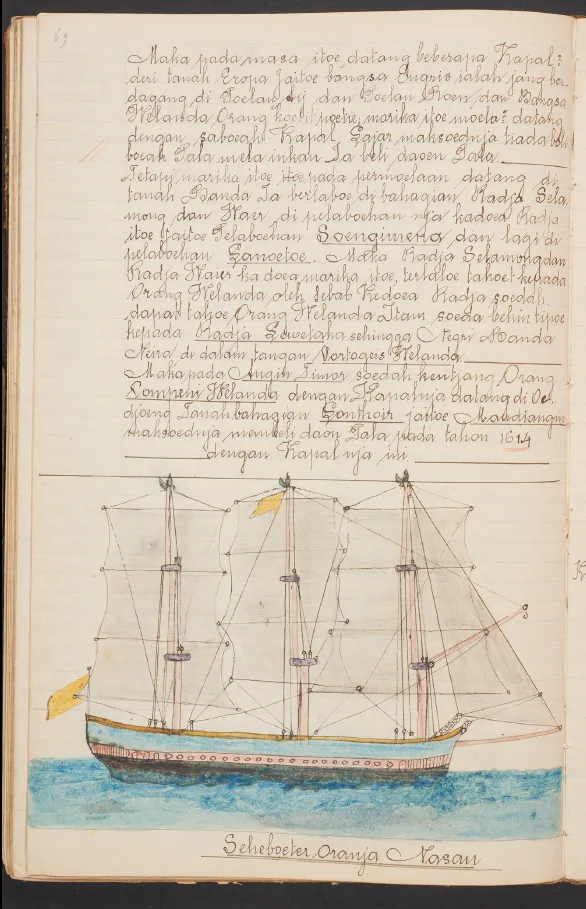 69
Maka pada masa itoe datang beberapa Kapal²
deri tanah Eropa Jaitoe bangsa Ingris ialah jang ber
dagang di Poelau Aij dan Poelau Roen, dan Bangsa
Welanda Orang poetie, marika itoe moela² datang
dengan saboeah Kapal Lajar maksoednja tiada
boeah Pala melainkan Ia beli daoen Pala
Tetapi marika itoe pada permoelaan datang di
tanah Banda Ia berlaboe di bahagian Radja Sela
mong dan Waer di pelaboehan nja kadoea Radja
itoe Jaitoe Pelaboehan dan lagi di
pelaboehan Lanoetoe. Maka Radja Selamong dan
Radja Waier ka doea marika itoe, terlaloe takoet kepada
Orang Welanda oleh sebab Kedoea Radja soedah
dapat tahoe Orang Welanda Itam soeda behin tipoe
kepada Radja Lewetaka sehingga Negri Banda
Neira di dalam tangan Vortogeis Welanda
Maka pada Angin Timor soedah kentjang Orang
Compeni Welanda dengan Kapalnja datang di Oe
djoeng Tanah bahagian Lonthoir jaitoe
maksoednja membeli daon Pala pada tahon 1614
dengan Kapal nja ini
Scheboeter Oranja Nasau